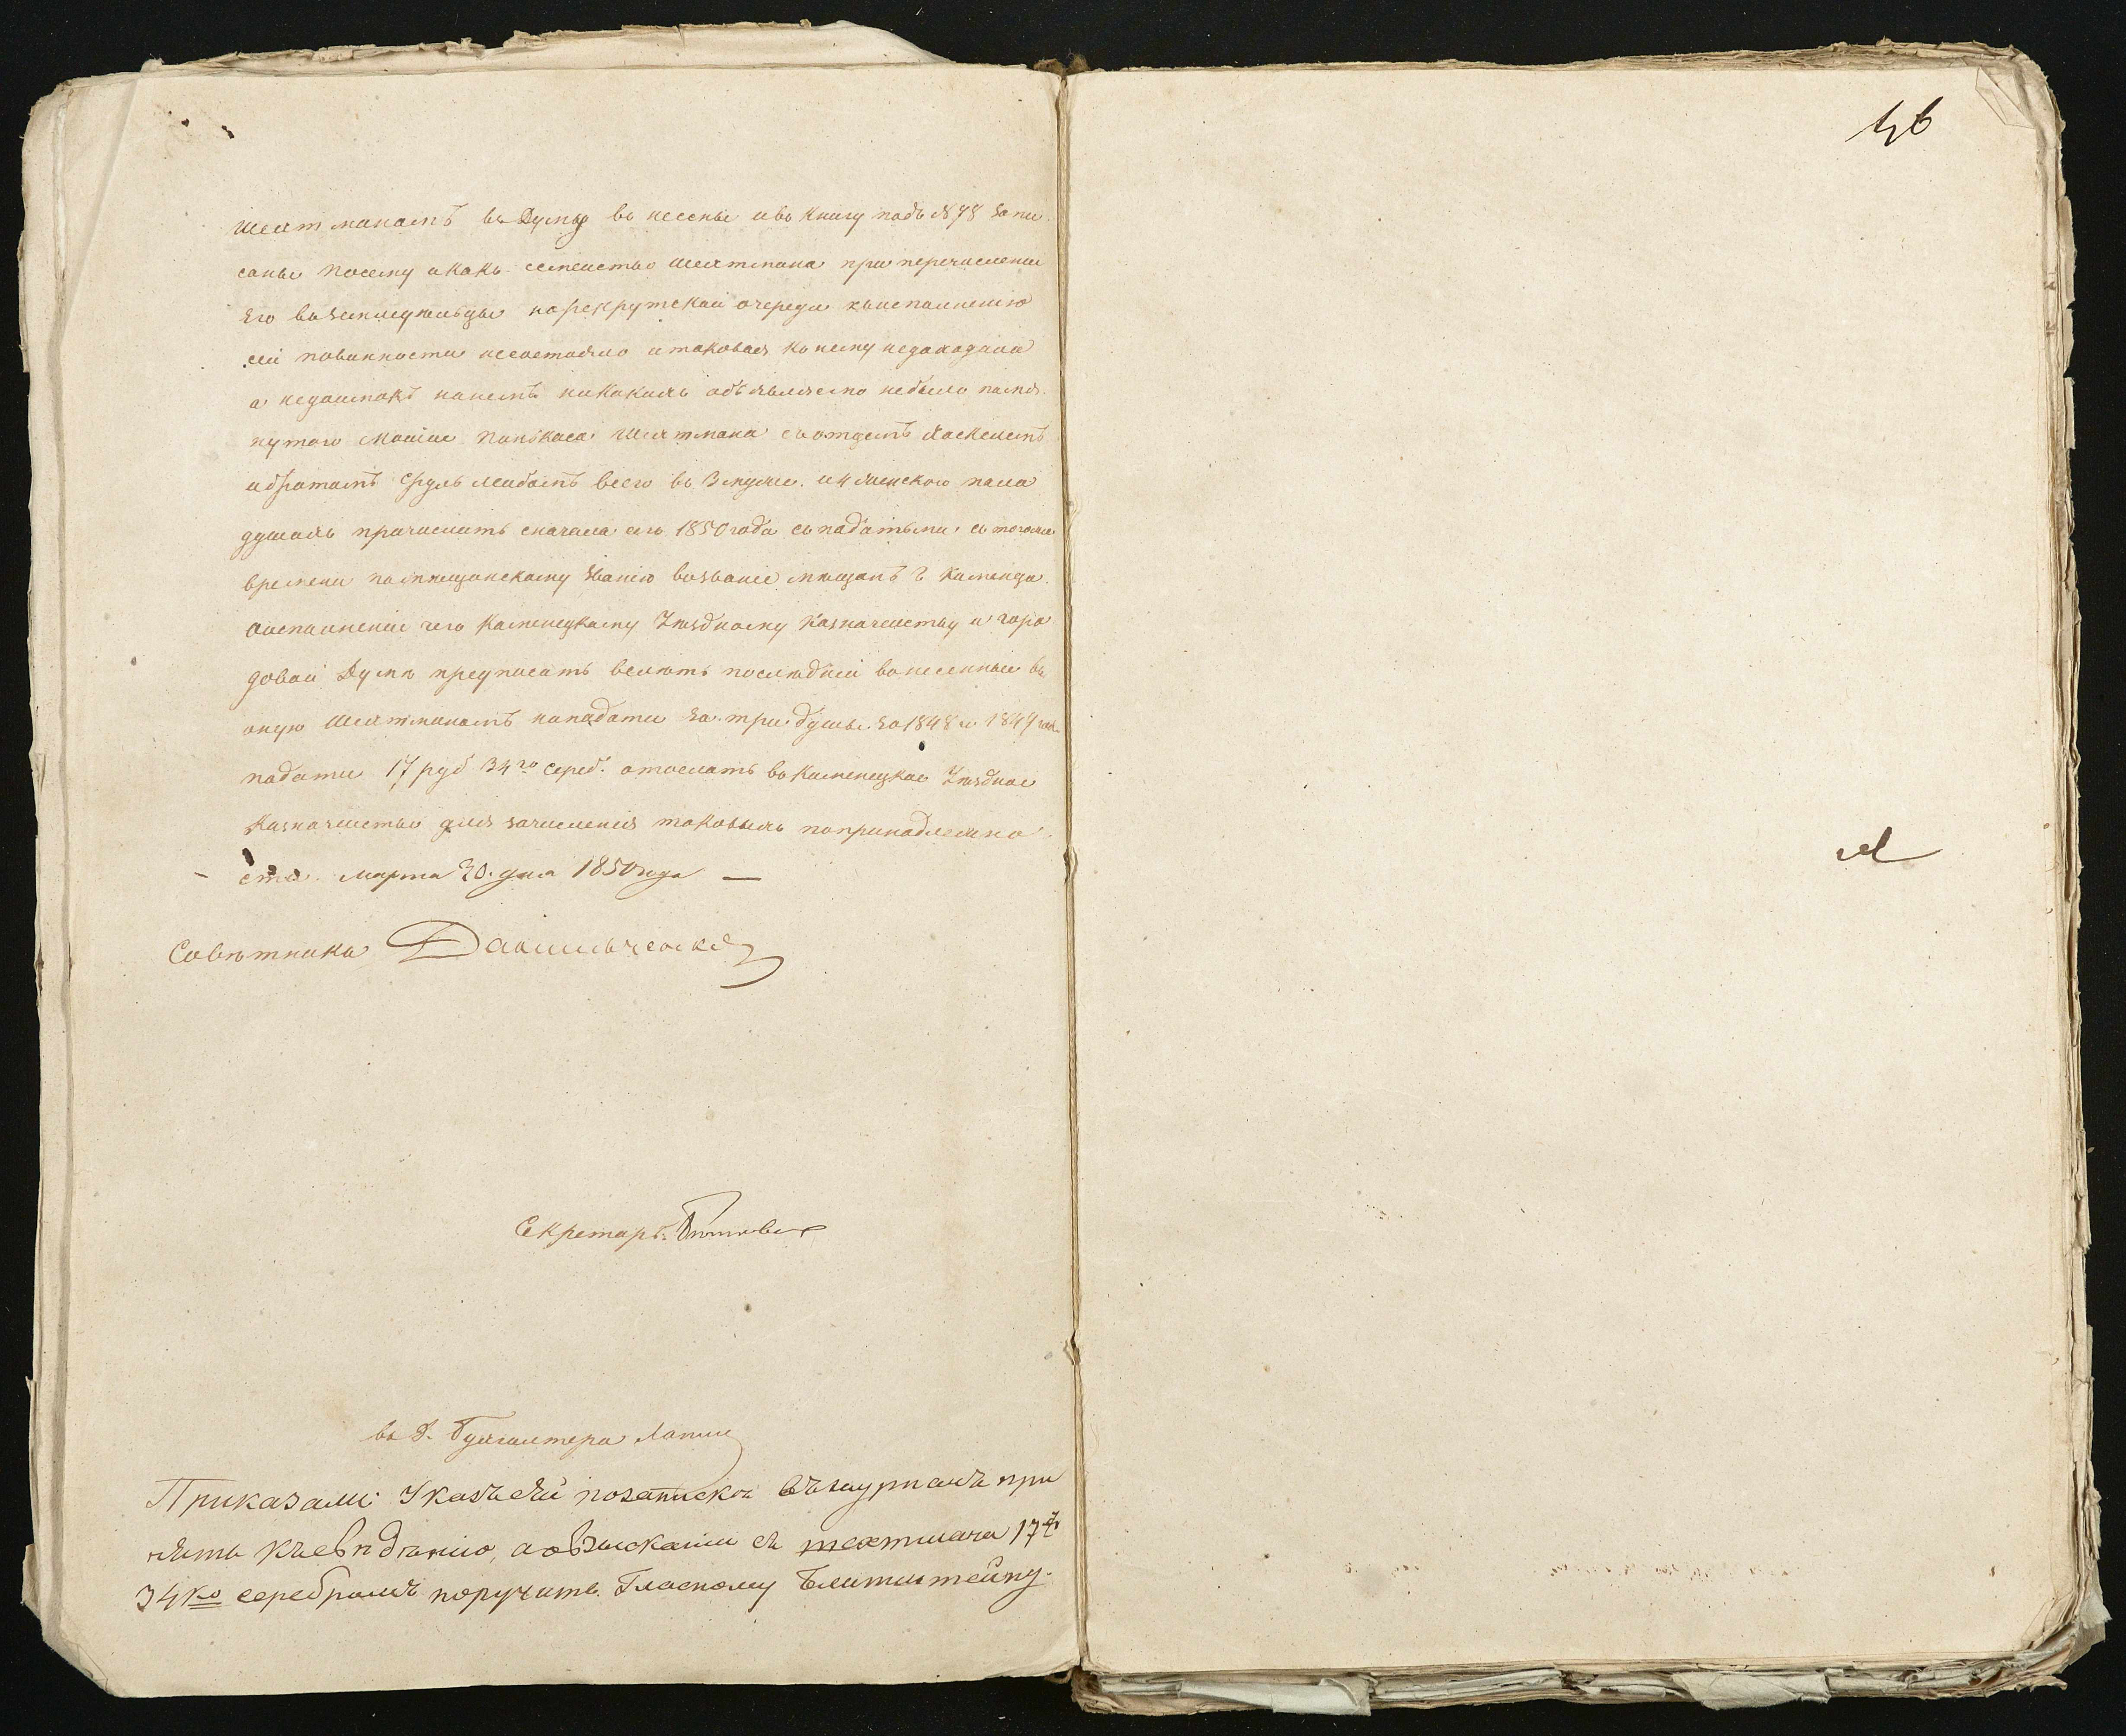 46
Шехтманомъ въ Думу внесены и въ книгу подъ №78 запи
саны посему и какъ семейство Шехтмана при перечислении
его въ земледельцы на рекрутской очереди к исполнению
сей повинности не состояло и таковая к нему не доходила
а недоимокъ на немъ никакихъ объявляемо не было помя
нутого Мошка Пинькаса Шехтмана съ отцемъ Хаскелемъ
и братомъ Сруль Лейбомъ всего въ 3 муже. и 4 женского пола
душахъ причислить сначала сего 1850 года съ податьми съ того же
времени по мещанскому званию въ звание мещанъ г Каменца
о исполнении чего Каменецкому Уездному Казначейству и Горо
довой Думе предписать велеть последней внесенные въ
оную Шехтманомъ на подати за три души за 1848 и 1849 год
подати 17 руб 34 ко сереб. отослать въ Каменецкое Уездное
Казначейство для зачисления таковыхъ по принадлежно
сти. Марта 20. дня 1850 года —
Советникъ
Секретарь
въ д. Бухгалтера
Приказали: Указъ сей позаписке въ журналъ при
нять къ сведению, а о взыскании съ Шехтмана 17 р
34 ко серебромъ поручить Гласному Блитштейну.